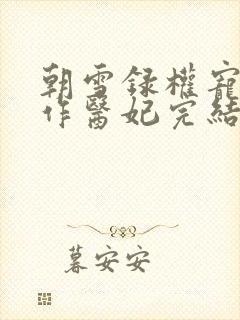 朝雪録權寵
作醫妃完結
暮安安